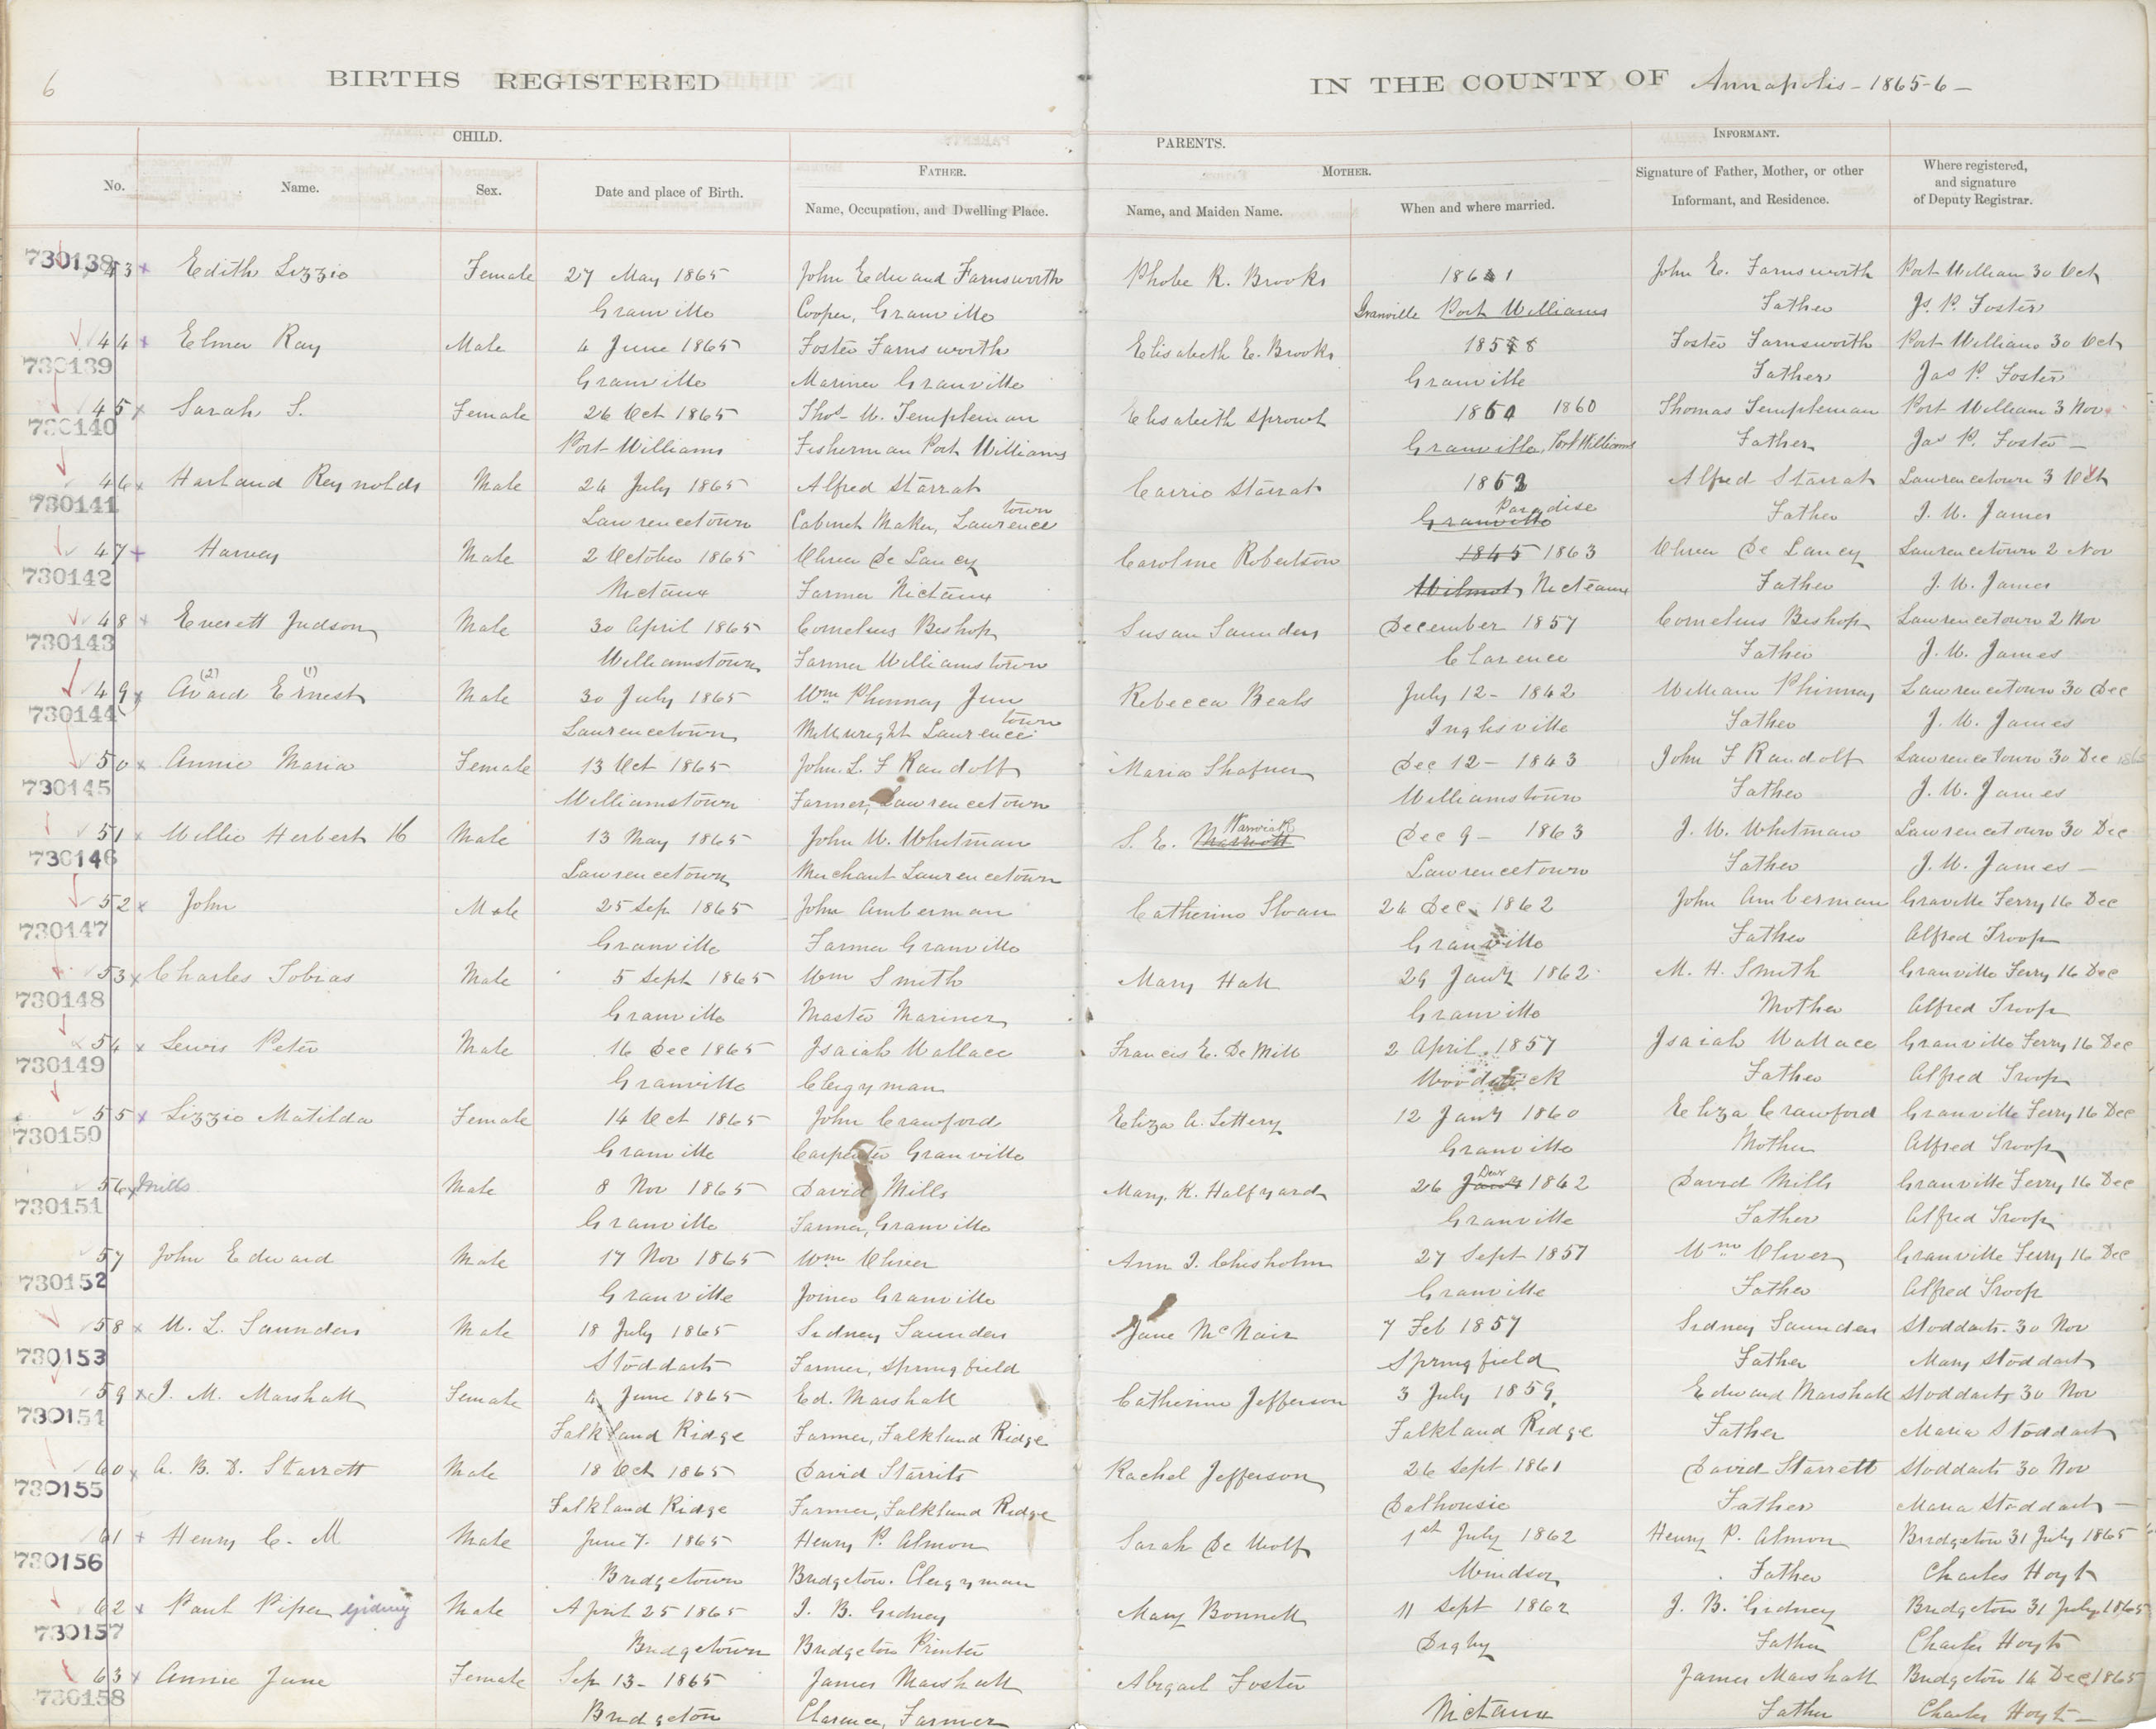 6
BIRTHS REGISTERED IN THE COUNTY OF Annapolis - 1865-6 -
CHILD. PARENTS. INFORMANT.
No. Name. Sex. Date and place of Birth. FATHER. Name, Occupation, and Dwelling Place. MOTHER. Name, and Maiden Name. When and where married. Signature of Father, Mother, or other Informant, and Residence. Where registered, and signature of Deputy Registrar.
730138 43 Edith Lizzie Female 27 May 1865 John Edward Farnsworth Phobe R. Brooks 1861 John E. Farnsworth Port William 30 Oct
Granville Cooper, Granville Granville Port Williams Father Js. P. Foster
44 Elmer Ray Male 4 June 1865 Foster Farnsworth Elisabeth E. Brooks 1858 Foster Farnsworth Port Williams 30 Oct
730139 Granville Mariner Granville Granville Father Jas P. Foster
45 Sarah S. Female 26 Oct 1865 Thos. W. Templeman Elisabeth Sprowl 1860 1860 Thomas Templeman Port William 3 Nov
730140 Port Williams Fisherman Port Williams Granville, Port Williams Father Jas P. Foster
46 Harland Reynolds Male 24 July 1865 Alfred Starrat Carrie Starrat 1862 Alfred Starrat Lawrencetown 3 Oct
730141 Lawrencetown Cabinet Maker, Lawrencetown Granville Paradise Father J. W. James
47 Harvey Male 2 October 1865 Oliver De Lancey Caroline Robertson 1845 1863 Oliver De Lancey Lawrencetown 2 Nov
730142 Nictaux Farmer Nictaux Wilmot, Nicteaux Father J. W. James
48 Everett Judson Male 30 April 1865 Cornelius Bishop Susan Saunders December 1857 Cornelius Bishop Lawrencetown 2 Nov
730143 Williamstown Farmer Williamstown Clarence Father J. W. James
49 Avard (2) Ernest (1) Male 30 July 1865 Wm Phinney Jun Rebecca Beals July 12 - 1862 William Phinney Lawrencetown 30 Dec
730144 Lawrencetown Millwright Lawrencetown Inglisville Father J. W. James
50 Annie Maria Female 13 Oct 1865 John L. F Randolf Maria Shafner Dec 12 - 1843 John F Randolf Lawrencetown 30 Dec 1865
730145 Williamstown Farmer, Lawrencetown Williamstown Father J. W. James
51 Willie Herbert 16 Male 13 May 1865 John W. Whitman S. E. Marriott Warwick Dec 9 - 1863 J. W. Whitman Lawrencetown 30 Dec
730146 Lawrencetown Merchant Lawrencetown Lawrencetown Father J. W. James
52 John Male 25 Sep 1865 John Amberman Catherine Sloan 24 Dec. 1862 John Amberman Graville Ferry 16 Dec
730147 Granville Farmer Granville Granville Father Alfred Troop
53 Charles Tobias Male 5 Sept 1865 Wm Smith Mary Hall 29 Jany 1862 M. H. Smith Granville Ferry 16 Dec
730148 Granville Master Mariner Granville Mother Alfred Troop
54 Lewis Peter Male 16 Dec 1865 Isaiah Wallace Frances E. De Mill 2 April 1857 Isaiah Wallace Granville Ferry 16 Dec
730149 Granville Clergyman Woodstock Father Alfred Troop
55 Lizzie Matilda Female 14 Oct 1865 John Crawford Eliza A. Littery 12 Jany 1860 Eliza Crawford Granville Ferry 16 Dec
730150 Granville Carpenter Granville Granville Mother Alfred Troop
56 Mills Male 8 Nov 1865 David Mills Mary K. Halfyard 26 Jany Decr 1862 David Mills Granville Ferry 16 Dec
730151 Granville Farmer, Granville Granville Father Alfred Troop
57 John Edward Male 17 Nov 1865 Wm Oliver Ann I. Chisholm 27 Sept 1857 Wm Oliver Granville Ferry 16 Dec
730152 Granville Joiner Granville Granville Father Alfred Troop
58 W. L. Saunders Male 18 July 1865 Sidney Saunders Jane McNair 7 Feb 1857 Sidney Saunders Stoddarts. 30 Nov
730153 Stoddarts Farmer, Springfield Springfield Father Mary Stoddart
59 I. M. Marshall Female 4 June 1865 Ed. Marshall Catherine Jefferson 3 July 1859 Edward Marshall Stoddarts 30 Nov
730154 Falkland Ridge Farmer, Falkland Ridge Falkland Ridge Father Maria Stoddart
60 A. B. D. Starrett Male 18 Oct 1865 David Starrits Rachel Jefferson 26 Sept 1861 David Starrett Stoddarts 30 Nov
730155 Falkland Ridge Farmer, Falkland Ridge Dalhousie Father Maria Stoddart
61 Henry C. M Male June 7. 1865 Henry P. Almon Sarah De Wolf 1st July 1862 Henry P. Almon Bridgeton 31 July 1865
730156 Bridgetown Bridgeton. Clergyman Windsor Father Charles Hoyt
62 Paul Piper Gidney Male April 25 1865 I. B. Gidney Mary Bonnell 11 Sept 1862 J. B. Gidney Bridgeton 31 July 1865
730157 Bridgetown Bridgeton Printer Digby Father Charles Hoyt
63 Annie Jane Female Sep 13 - 1865 James Marshall Abigail Foster James Marshall Bridgeton 14 Dec 1865
730158 Bridgeton Clarence, Farmer Nictaux Father Charles Hoyt